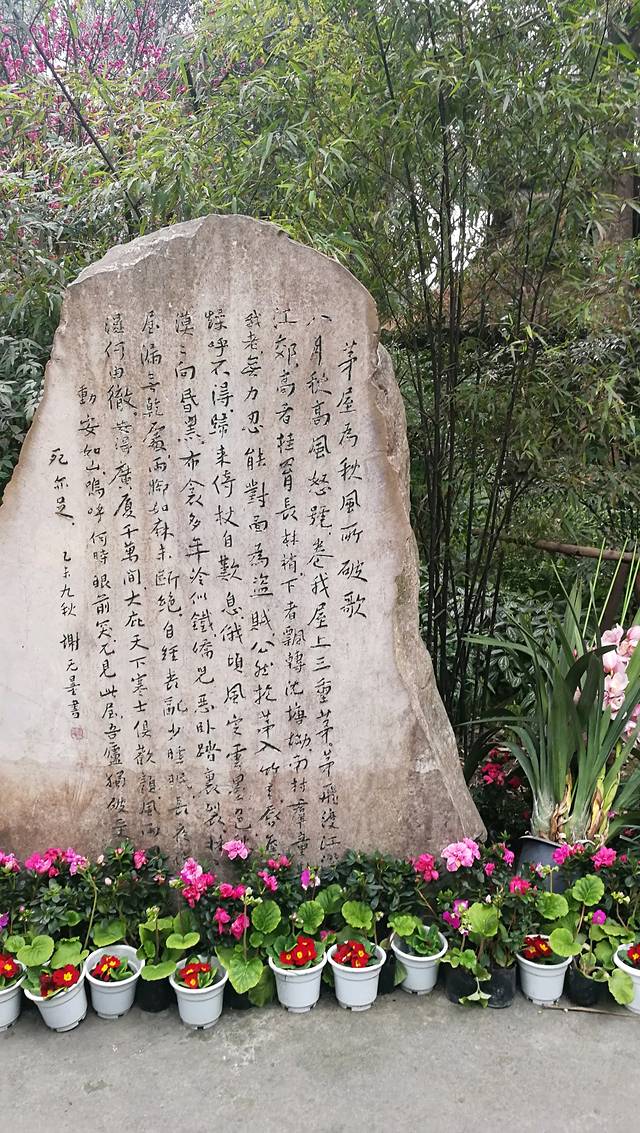 茅屋為秋風所破歌
八月秋高風怒號卷我屋上三重茅茅飛渡江
江郊高者挂罥長林梢下者飄轉沈塘坳南村群童
我老無力忍能對面為盜賊公然抱茅入竹去唇焦
燥呼不得歸來倚杖自歎息俄頃風定雲墨色
漠〻向昏黑布衾多年冷似鐵嬌兒惡卧踏裏裂牀
屋漏無乾處雨腳如麻未斷絕自經喪亂少睡眠長夜
濕何由徹安得廣廈千萬間大庇天下寒士俱歡顏風雨
動安如山嗚呼何時眼前突兀見此屋吾廬獨破受
死亦足
乙未九秋 謝无量書